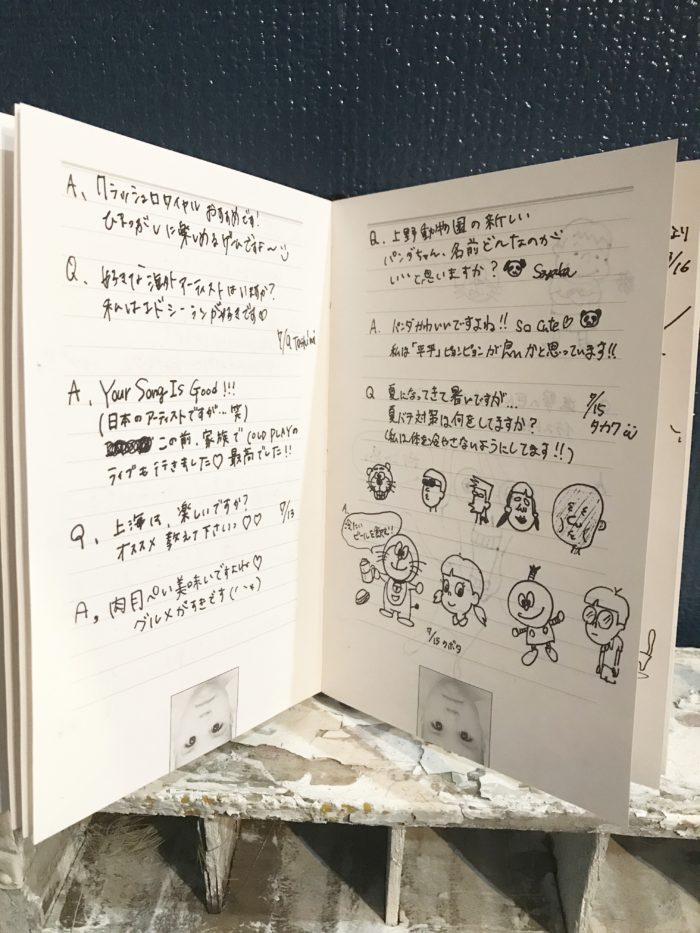 A、クラッシュロワイヤル おすすめです!
ひまつぶしに楽しめるゲームですよ〜
Q、好きな海外アーティストはいますか?
私はエドシーランが好きです♡
A、Your Song Is Good!!!
(日本のアーティストですが…笑)
この前、家族でCOLD PLAYの
ライブも行きました♡ 最高でした!!
Q、上海は、楽しいですか?
オススメ教えて下さいっ♡♡ 7/13
A、美味いですよね♡
グルメがすきです
Q、上野動物園の新しい
パンダちゃん、名前どんなのが
いいと思いますか? Sayaka
A、パンダかわいいですよね!! So cute♡
私は「平平」ピョンピョンが良いかと思っています!!
Q 夏になってきて暑いですが…
夏バテ対策は何をしてますか?
(私は体を冷やさないようにしてます!!)
7/15
タカワ
A、
冷たい
ビールを飲む!
7/15 クボタ
より
3/16